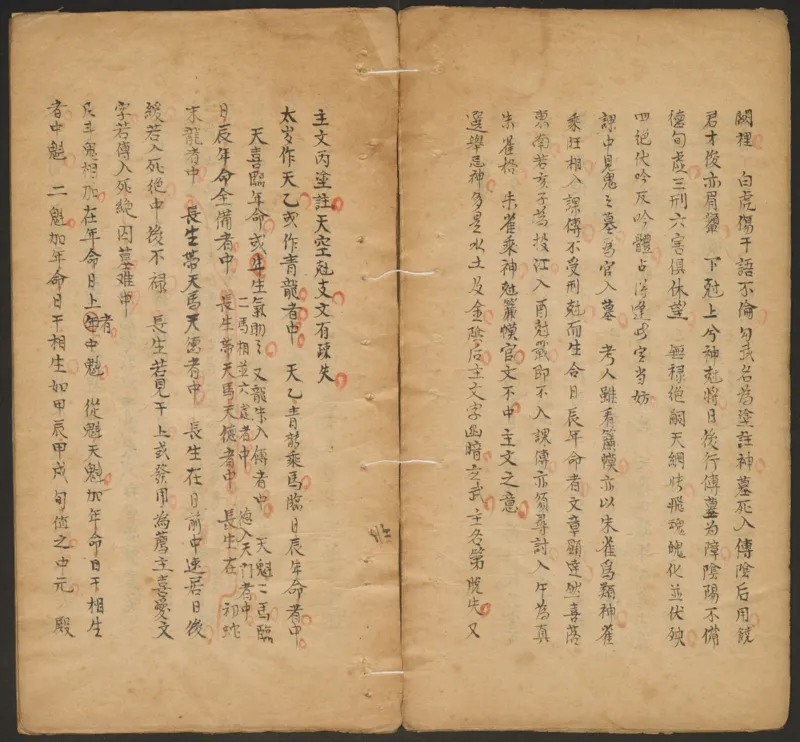 闕裡 白虎傷干語不倫勾武名為塗註神墓死入傳陰后用饒
君才俊亦眉顰 下尅上兮神尅將日後行傳墓為障陰陽不備
德旬虛三刑六害俱休望 無祿絕嗣天網恢飛魂魄化並伏殃
四絕伏吟反吟體占得逢此定當妨
課中見鬼之墓為官入墓 考人雖看簾幙亦以朱雀為類神雀
乘旺相入課傳不受刑尅而生合日辰年命者文章顯達然喜落
東南若亥子為投江入酉尅戰即不入課傳亦須尋討入午為真
朱雀格 朱雀乘神尅簾幙官文不中主文之意
選舉忌神多是水土及金陰后主文字幽暗玄武主名第脫失 又
主文丙塗註天空尅支文有疎失
太岁作天乙或作青龍者中 天乙青龍乘馬臨日辰年命者中
天喜臨年命或生生氣助之又龍朱入傳者中 天魁二馬臨
日辰年命全備者中 二馬相並六處者中 長生帶天馬天德者中 遁入天門者中 長生在 初蛇
末龍者中 長生帶天馬天德者中 長生在日前中速居日後
緩若入死絕中後不祿 長生若見干上或發用為薦主喜愛文
字若傳入死絕囚墓难中
凡斗鬼相加在年命日上者中魁 從魁天魁加年命日干相生
者中魁 二魁加年命日干相生如甲辰甲戌旬值之中元 殿